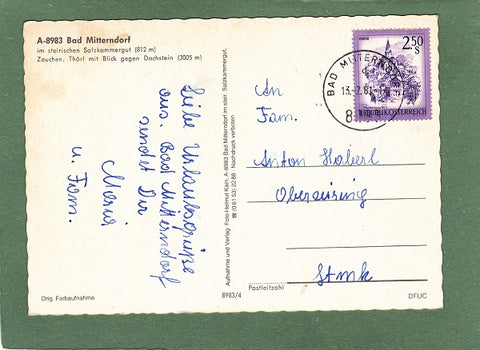 A-8983 Bad Mitterndorf
im steirischen Salzkammergut (812 m)
Zauchen, Thörl mit Blick gegen Dachstein (3005 m)
Liebe Urlaubsgrüße
aus Bad Mitterndorf
sendet Dir
Maria
u. Fam.
Orig. Farbaufnahme
Aufnahme und Verlag: Foto Helmut Kain, A-8983 Bad Mitterndorf im steir. Salzkammergut.
☎ (0 61 53) 22 88 · Nachdruck verboten
8983/4
2.50
S
REPUBLIK ÖSTERREICH
BAD MITTERNDORF
An
Fam.
Anton Haberl
Stmk
Postleitzahl
DFUC